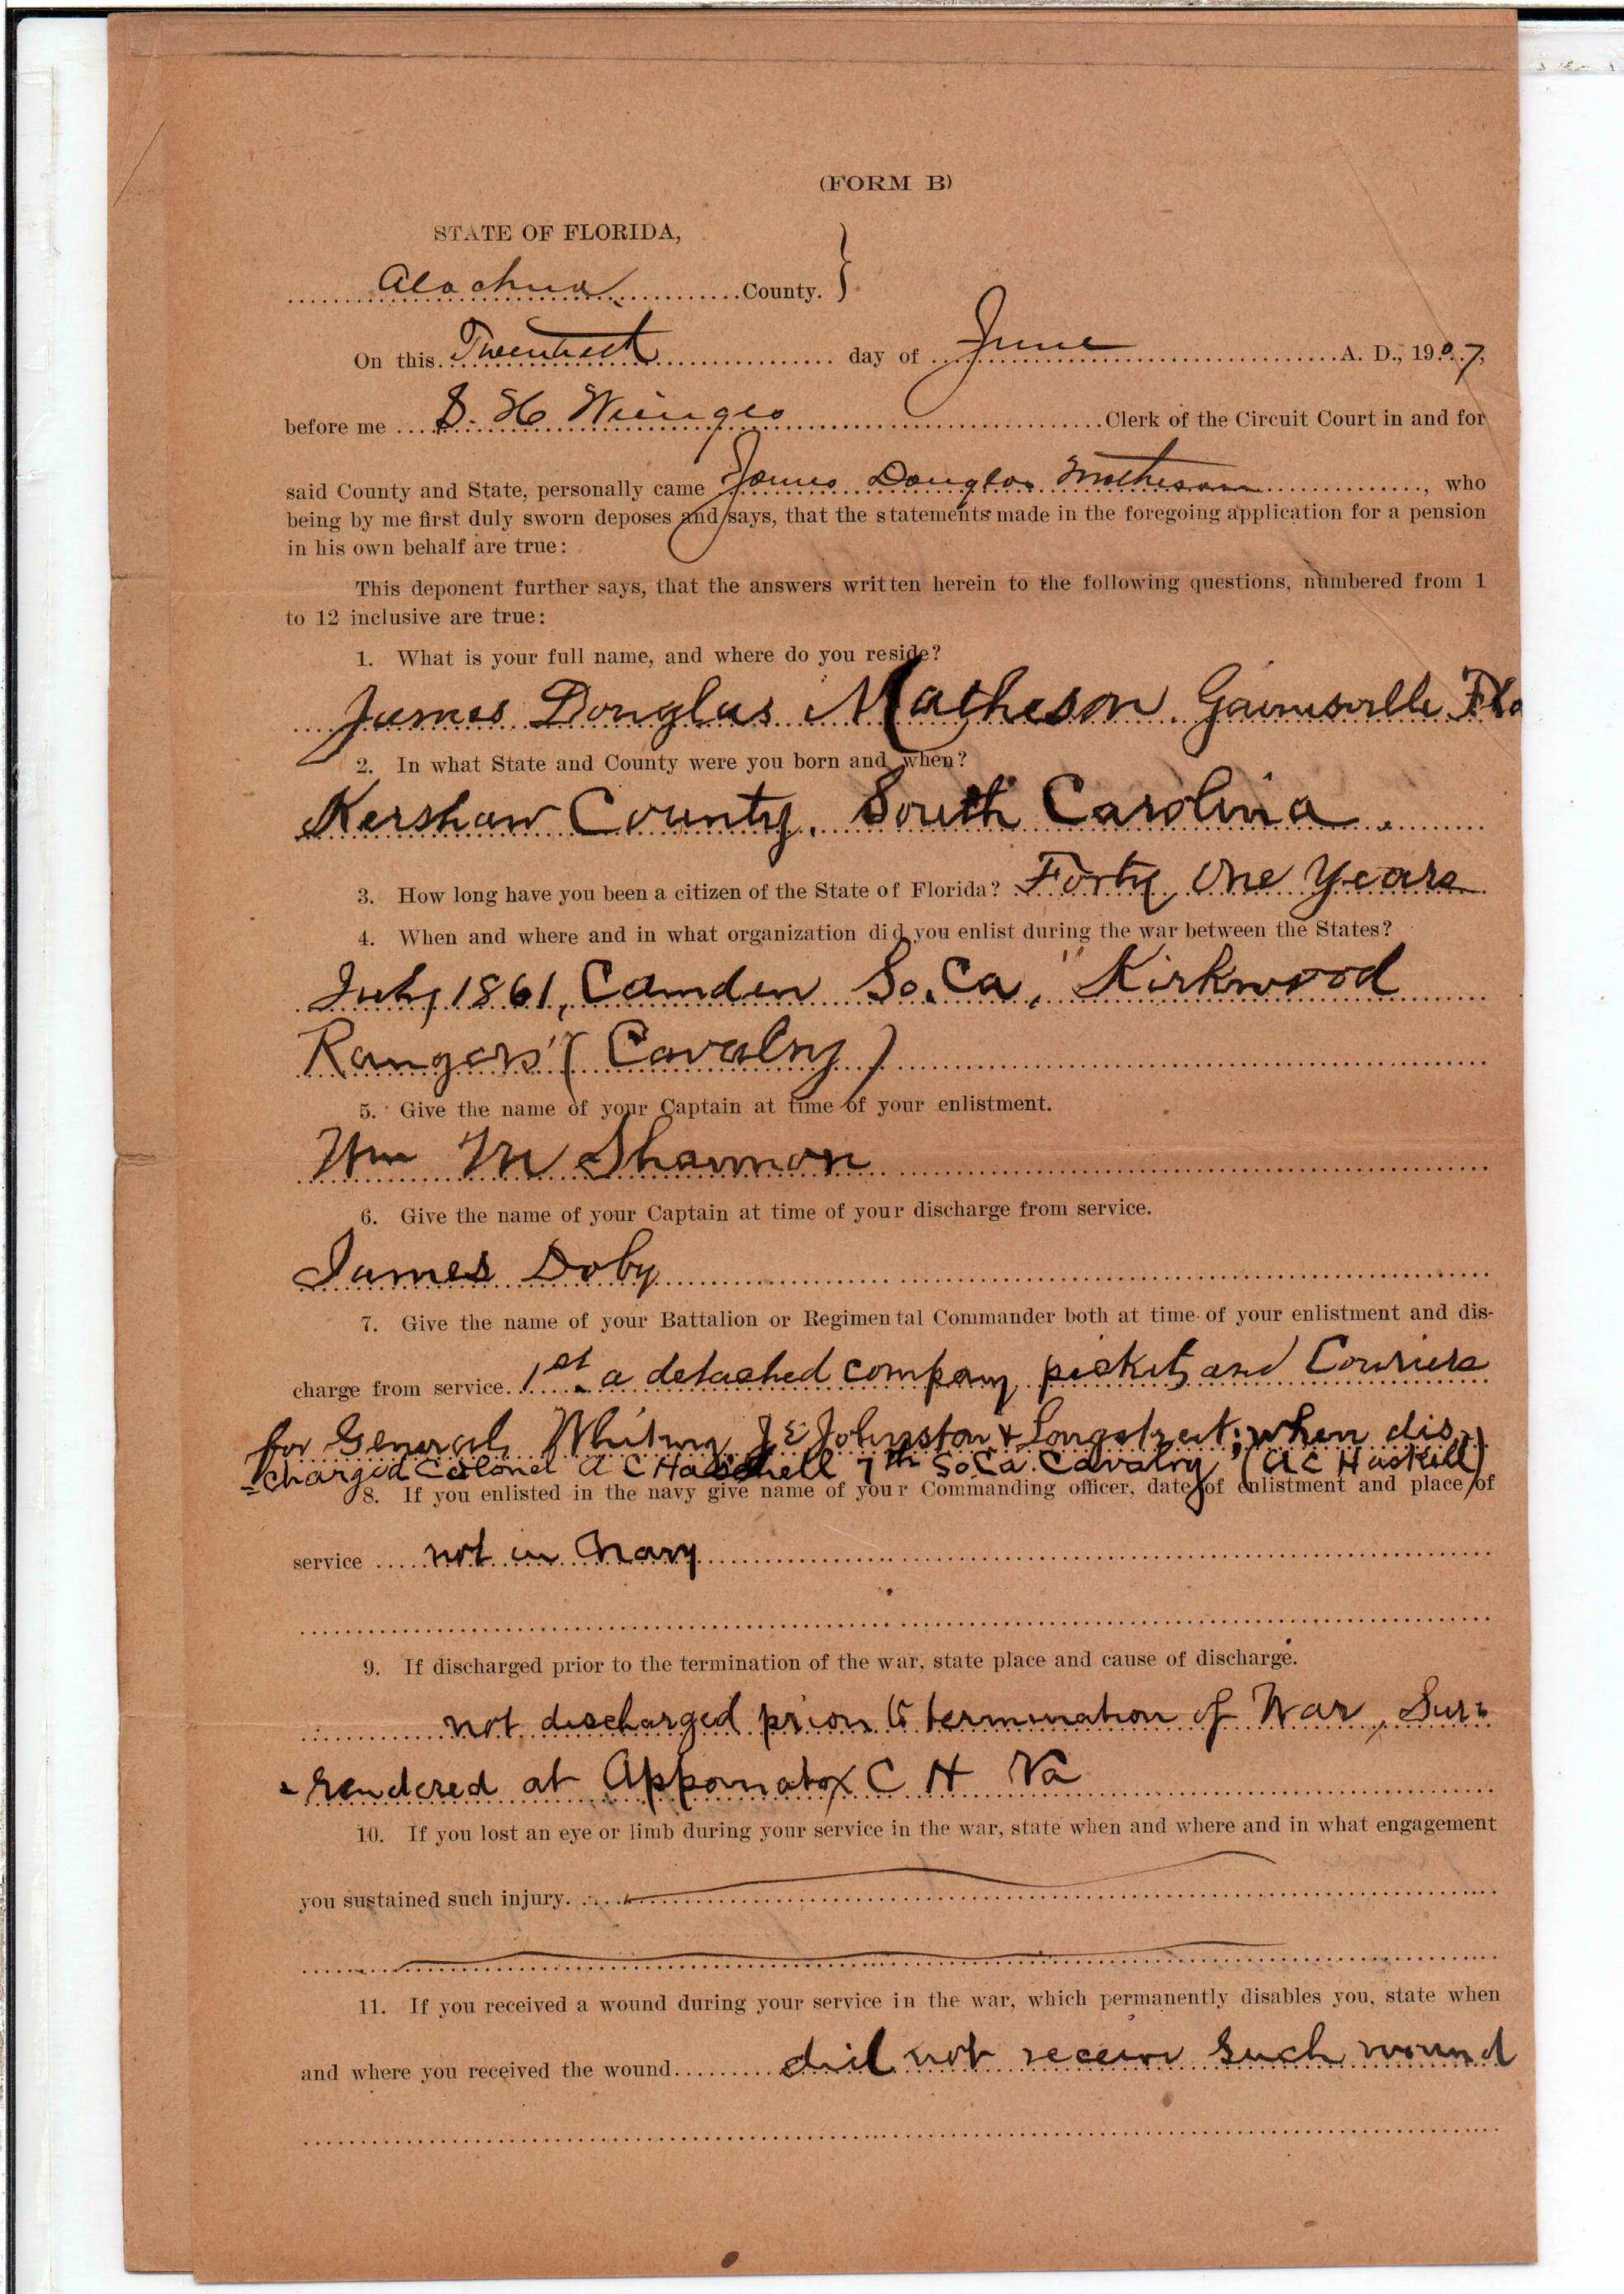 (FORM B)
STATE OF FLORIDA,
Alachua County. }
On this Twentieth day of June A. D., 1907,
before me S. H. Wienges Clerk of the Circuit Court in and for
said County and State, personally came James Douglas Matheson, who
being by me first duly sworn deposes and says, that the statements made in the foregoing application for a pension
in his own behalf are true:
This deponent further says, that the answers written herein to the following questions, numbered from 1
to 12 inclusive are true:
1. What is your full name, and where do you reside?
James Douglas Matheson. Gainesville Fla
2. In what State and County were you born and when?
Kershaw County, South Carolina.
3. How long have you been a citizen of the State of Florida? Forty One Years
4. When and where and in what organization did you enlist during the war between the States?
July 1861, Camden So.Ca, "Kirkwood
Rangers" (Cavalry)
5. Give the name of your Captain at time of your enlistment.
Wm M Shannon
6. Give the name of your Captain at time of your discharge from service.
James Doby
7. Give the name of your Battalion or Regimental Commander both at time of your enlistment and dis-
charge from service. 1st a detached company pickets and Couriers
for General Whiting J E Johnston & Longstreet; when dis-
-charged Colonel A C Haskell 7th So.Ca. Cavalry (A C Haskell)
8. If you enlisted in the navy give name of your Commanding officer, date of enlistment and place of
service not in Navy
9. If discharged prior to the termination of the war, state place and cause of discharge.
not discharged prior to termination of War, Sur-
-rendered at Appomatox C H Va
10. If you lost an eye or limb during your service in the war, state when and where and in what engagement
you sustained such injury.
11. If you received a wound during your service in the war, which permanently disables you, state when
and where you received the wound did not receive such wound